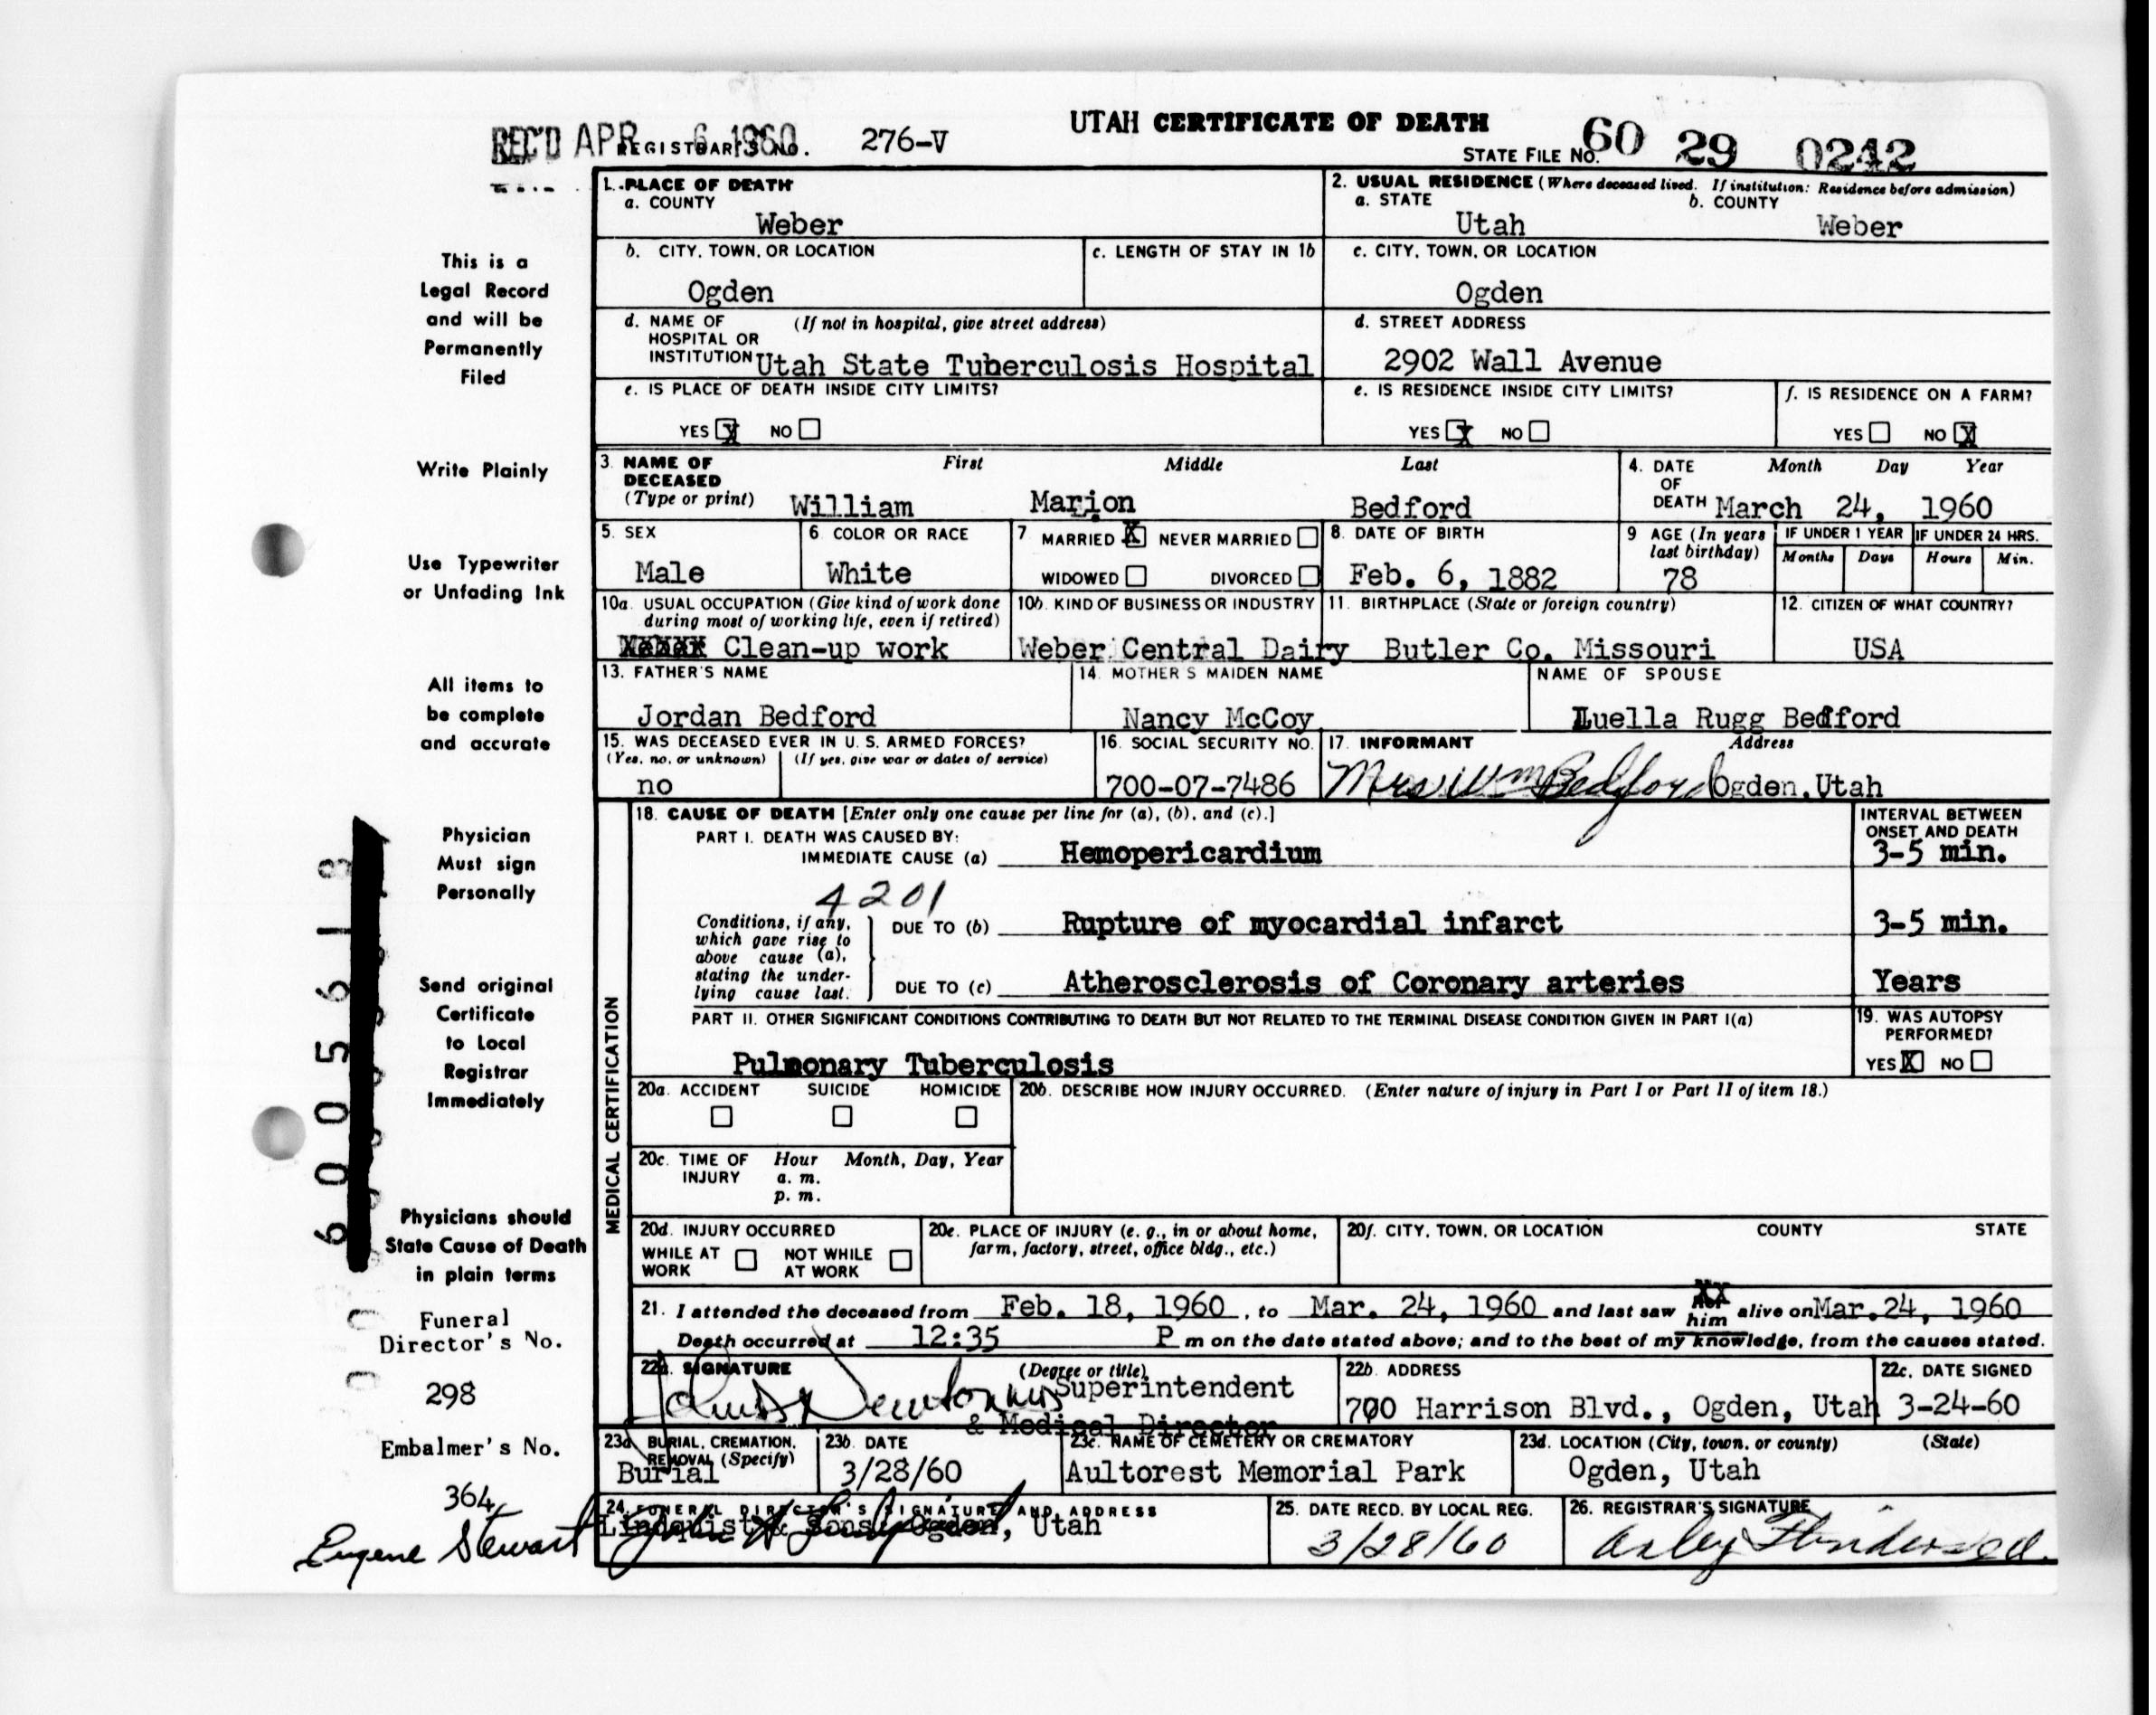 UTAH CERTIFICATE OF DEATH
REC'D APR 6 1960 REGISTRAR'S NO. 276-V
STATE FILE NO. 60 29 0242
1. PLACE OF DEATH
a. COUNTY
Weber
2. USUAL RESIDENCE (Where deceased lived. If institution: Residence before admission)
a. STATE b. COUNTY
Utah Weber
b. CITY, TOWN, OR LOCATION
Ogden
c. LENGTH OF STAY IN 1b
c. CITY, TOWN, OR LOCATION
Ogden
d. NAME OF (If not in hospital, give street address)
HOSPITAL OR
INSTITUTION Utah State Tuberculosis Hospital
d. STREET ADDRESS
2902 Wall Avenue
e. IS PLACE OF DEATH INSIDE CITY LIMITS?
YES X NO
e. IS RESIDENCE INSIDE CITY LIMITS?
YES X NO
f. IS RESIDENCE ON A FARM?
YES NO X
3. NAME OF First Middle Last
DECEASED
(Type or print) William Marion Bedford
4. DATE Month Day Year
OF
DEATH March 24, 1960
5. SEX
Male
6. COLOR OR RACE
White
7. MARRIED X NEVER MARRIED
WIDOWED DIVORCED
8. DATE OF BIRTH
Feb. 6, 1882
9. AGE (In years
last birthday)
78
IF UNDER 1 YEAR
Months Days
IF UNDER 24 HRS.
Hours Min.
10a. USUAL OCCUPATION (Give kind of work done
during most of working life, even if retired)
Clean-up work
10b. KIND OF BUSINESS OR INDUSTRY
Weber Central Dairy
11. BIRTHPLACE (State or foreign country)
Butler Co. Missouri
12. CITIZEN OF WHAT COUNTRY?
USA
13. FATHER'S NAME
Jordan Bedford
14. MOTHER'S MAIDEN NAME
Nancy McCoy
NAME OF SPOUSE
Luella Rugg Bedford
15. WAS DECEASED EVER IN U. S. ARMED FORCES?
(Yes, no, or unknown) (If yes, give war or dates of service)
no
16. SOCIAL SECURITY NO.
700-07-7486
17. INFORMANT Address
Mrs Wm Bedford Ogden, Utah
MEDICAL CERTIFICATION
18. CAUSE OF DEATH [Enter only one cause per line for (a), (b), and (c).]
INTERVAL BETWEEN
ONSET AND DEATH
PART I. DEATH WAS CAUSED BY:
IMMEDIATE CAUSE (a) Hemopericardium 3-5 min.
4201
Conditions, if any,
which gave rise to
above cause (a),
stating the under-
lying cause last.
DUE TO (b) Rupture of myocardial infarct 3-5 min.
DUE TO (c) Atherosclerosis of Coronary arteries Years
PART II. OTHER SIGNIFICANT CONDITIONS CONTRIBUTING TO DEATH BUT NOT RELATED TO THE TERMINAL DISEASE CONDITION GIVEN IN PART I(a)
Pulmonary Tuberculosis
19. WAS AUTOPSY
PERFORMED?
YES X NO
20a. ACCIDENT SUICIDE HOMICIDE
20b. DESCRIBE HOW INJURY OCCURRED. (Enter nature of injury in Part I or Part II of item 18.)
20c. TIME OF Hour Month, Day, Year
INJURY a. m.
p. m.
20d. INJURY OCCURRED
WHILE AT NOT WHILE
WORK AT WORK
20e. PLACE OF INJURY (e. g., in or about home,
farm, factory, street, office bldg., etc.)
20f. CITY, TOWN, OR LOCATION COUNTY STATE
21. I attended the deceased from Feb. 18, 1960, to Mar. 24, 1960 and last saw her him alive on Mar. 24, 1960
Death occurred at 12:35 P m on the date stated above; and to the best of my knowledge, from the causes stated.
22a. SIGNATURE (Degree or title)
Superintendent
& Medical Director
22b. ADDRESS
700 Harrison Blvd., Ogden, Utah
22c. DATE SIGNED
3-24-60
23a. BURIAL, CREMATION,
REMOVAL (Specify)
Burial
23b. DATE
3/28/60
23c. NAME OF CEMETERY OR CREMATORY
Aultorest Memorial Park
23d. LOCATION (City, town, or county) (State)
Ogden, Utah
24. FUNERAL DIRECTOR'S SIGNATURE AND ADDRESS
Lindquist & Sons, Ogden, Utah
25. DATE RECD. BY LOCAL REG.
3/28/60
26. REGISTRAR'S SIGNATURE
This is a
Legal Record
and will be
Permanently
Filed
Write Plainly
Use Typewriter
or Unfading Ink
All items to
be complete
and accurate
Physician
Must sign
Personally
Send original
Certificate
to Local
Registrar
Immediately
Physicians should
State Cause of Death
in plain terms
Funeral
Director's No.
298
Embalmer's No.
364
Eugene Stewart